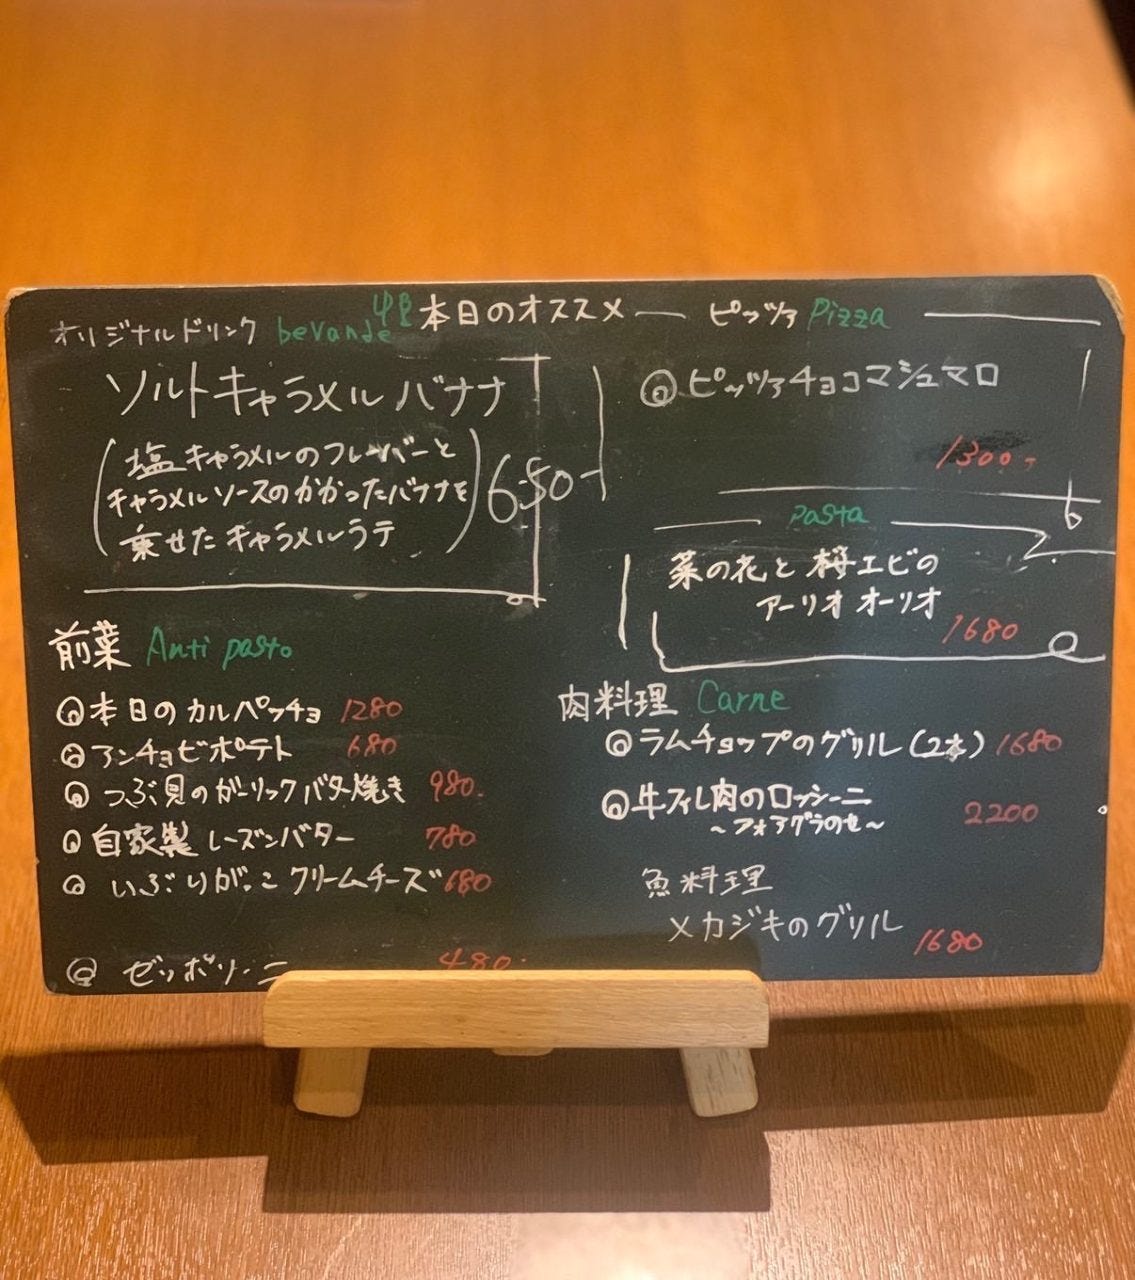 本日のオススメ
オリジナルドリンク bevande
ソルトキャラメルバナナ
(塩キャラメルのフレーバーと
キャラメルソースのかかったバナナを
乗せたキャラメルラテ) 650-
ピッツァ Pizza
ピッツァチョコマシュマロ
1300-
Pasta
菜の花と桜エビの
アーリオオーリオ
1680
前菜 Anti pasto
本日のカルパッチョ 1280
アンチョビポテト 680
つぶ貝のガーリックバター焼き 980.
自家製レーズンバター 780
いぶりがっこクリームチーズ 680
ゼッポリーニ 480.
肉料理 Carne
ラムチョップのグリル(2本) 1680
牛フィレ肉のロッシーニ 2200
~フォアグラのせ~
魚料理
メカジキのグリル 1680